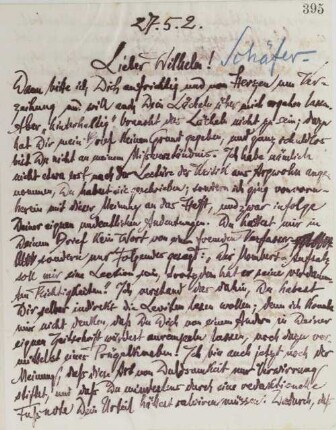 395
27.5.2.
Lieber Wilhelm! Schäfer
Dann bitte ich Dich aufrichtig und von Herzen um Ver-
zeihung und will auch Dein Lächeln über mich ergehn lassen.
Aber "kinderhellig" braucht das Lächeln nicht zu sein; dazu
hat Dir mein Brief keinen Grund gegeben, und ganz schuldlos
bist Du nicht an meinem Missverständnis. Ich habe nämlich
nicht etwa erst nach der Lectüre der Kritik aus Argwohn ange-
nommen, Du habest sie geschrieben; sondern ich ging von vorn-
herein mit dieser Meinung an das Heft, und zwar infolge
Deiner eignen undeutlichen Andeutungen. Du hattest mir in
Deinem Brief kein Wort von einem fremden Verfasser
sondern nur Folgendes gesagt: der Aufsatz
soll mir eine Lection sein, trotzdem hat er seine
Flüchtigkeiten! Ich verstand das dahin, Du habest
Dir selber indirekt die Leviten lesen wollen; denn ich konnte
mir nicht denken, dass Du Dich von einem Andern in Deiner
eignen Zeitschrift würdest anranzen lassen, noch dazu ver-
mittelst einer Ich bin auch jetzt noch der
Meinung, dass diese Art von Duldsamkeit nur Verwirrung
stiftet, und dass Du mindestens durch eine redaktionelle
Fussnote Dein Urteil hättest salviren müssen. Dadurch, daß